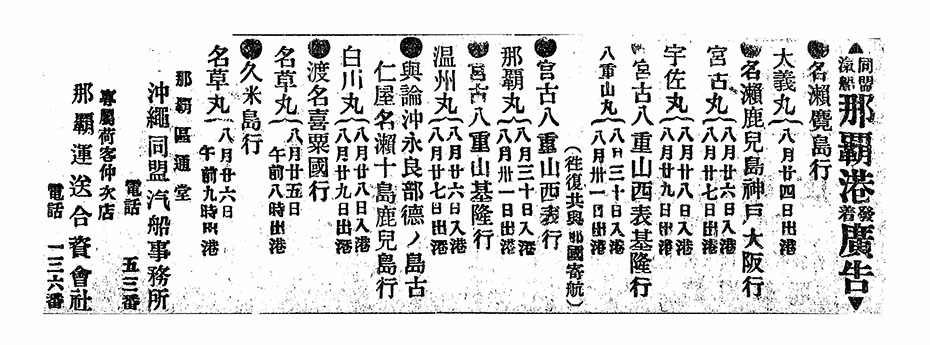 ▲同盟滊船那覇港發着廣告▼
●名瀨鹿兒島行
大義丸(八月廿四日出港
●名瀨鹿兒島神戸大阪行
宮古丸(八月廿六日入港 八月廿七日出港
宇佐丸(八月廿八日入港 八月廿九日出港
●宮古八重山西表基隆行
八重山丸(八月三十日入港 八月卅一日出港
(徃復共與那國寄航)
●宮古八重山西表行
那覇丸(八月三十日入港 八月卅一日出港
●宮古八重山基隆行
温州丸(八月廿六日入港 八月廿七日出港
●與論沖永良部德ノ島古仁屋名瀨十島鹿兒島行
白川丸(八月廿八日入港 八月廿九日出港
●渡名喜粟國行
名草丸(八月廿五日 午前八時出港
●久米島行
名草丸(八月廿六日 午前九時出港
那覇區通堂
沖繩同盟汽船事務所
電話 五三番
專屬荷客仲次店
那覇運送合資會社
電話 一三六番